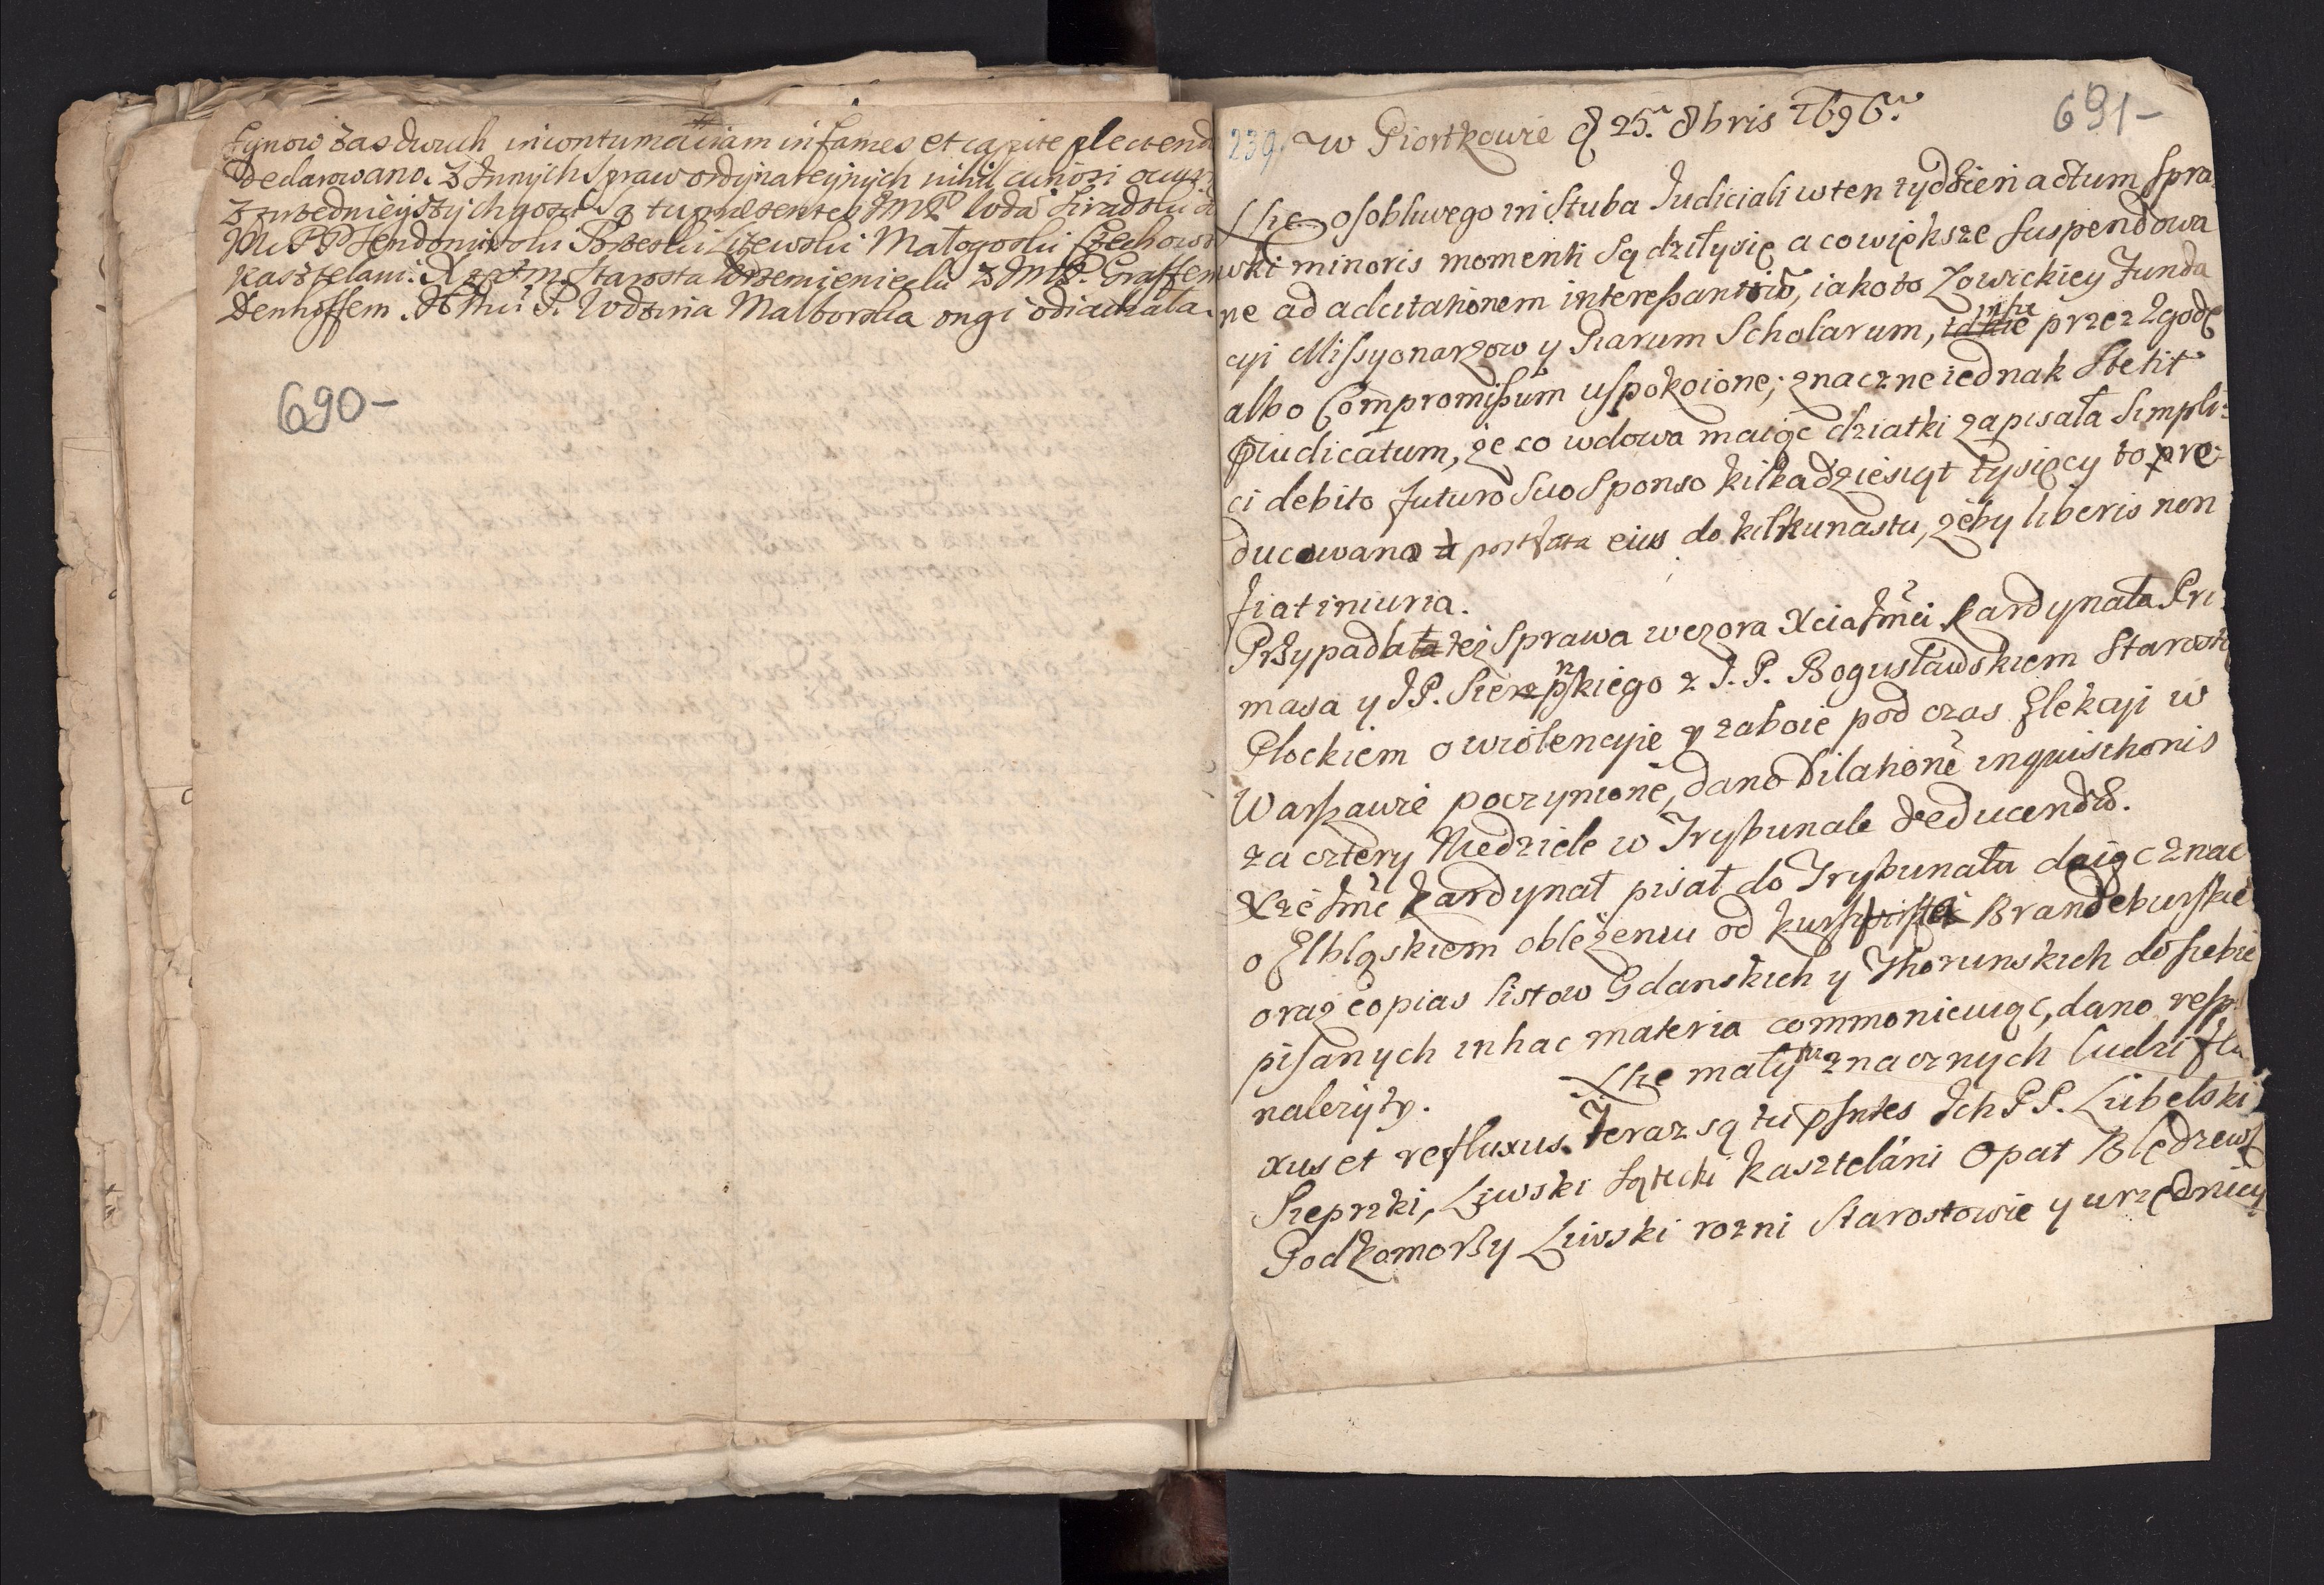 synow zas dwuch in contumaciam infames, et capite plectend
declarowano. Z Innych spraw ordynaryinych nihil curiosi occur
Z przednieyszych gosci są tu praesentes JMP Wda Siradzki
JMci PP Sendomirski Brzeski Lizewski Małogoski Czechows
kasztelani. X JeoMć Starosta Krzemieniecki z JMP. Graffem
Denhoffem. JeMći P. Wdzina Malborska ongi odiachała.
690-
239 W Piortkowie d 25.a 8bris 1696.o
691-
Nic osobliwego in Stuba Judiciali w ten tydzien actum spra
wki minoris momenti sądziły się a co większe suspendowa
ne ad acutationem interessantiũ, iako to Łowickiey Funda
cyi Missyonarzow y Piarum Scholarum, przez zgodę
albo Compromissum uspokoione; znaczne iednak stetit
Pśiudicatum, że co wdowa maiąc dziatki zapisała simpli:
ci debito futuro suo sponso kilkadziesiąt tysięcy to pre
ducowano post fata eius do kilkunastu, żeby liberis non
fiat iniuria.
Przypadła też sprawa wczora Xcia Jmci Kardynała Pri
masa y JP. Sierpskiego z J. P. Bogusławskiem Starostą
Płockiem o wiolencyie y zaboie pod czas Elekcyi w
Warszawie poczynione, dano Dilationẽ inquisitionis
za cztery Niedziele w Trybunale deducendæ.
Xże Jmć Kardynał pisał do Trybunału daiąc znac
o Elbląskiem oblężeniu od kurfirsta Brandeburskie
oraz copias listow Gdanskich y Thorunskich do siebie
pisanych in hac materia commonicuiąc, dano resp.
należyty. Nie mały tu znacznych ludzi flu
xus et refluxus. Teraz są tu psntes Ich PP. Lubelski
Sieprzki, Liwski Łątcki kasztelani Opat Blędzews
Podkomorzy Liwski rozni Starostowie y urzędnicy